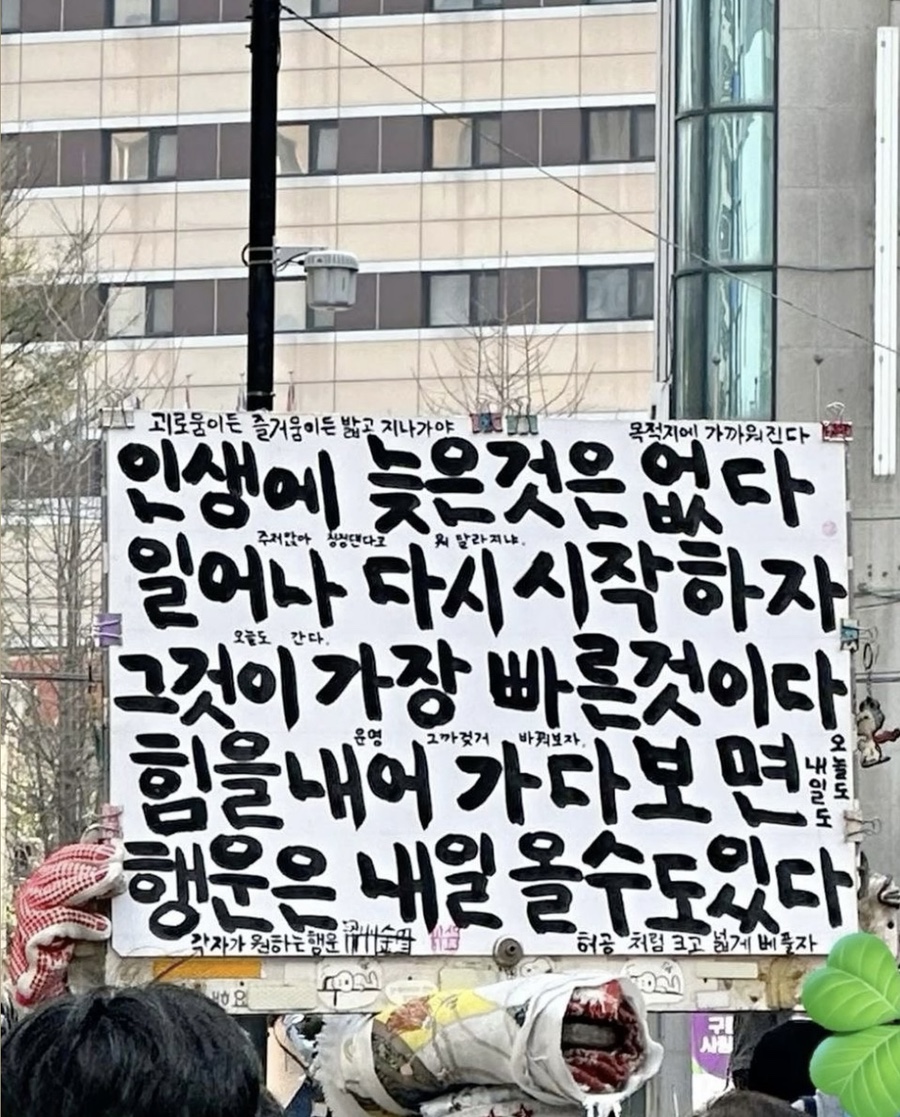 괴로움이든 즐거움이든 밟고 지나가야 목적지에 가까워진다
인생에 늦은것은 없다
주저앉아 징징댄다고 뭐 달라지냐.
일어나 다시 시작하자
오늘도 간다.
그것이 가장 빠른것이다
운명 그까짓거 바꿔보자.
힘을내어 가다보면
오늘도
내일도
행운은 내일 올수도있다
각자가 원하는행운
허공 처럼 크고 넓게 베풀자